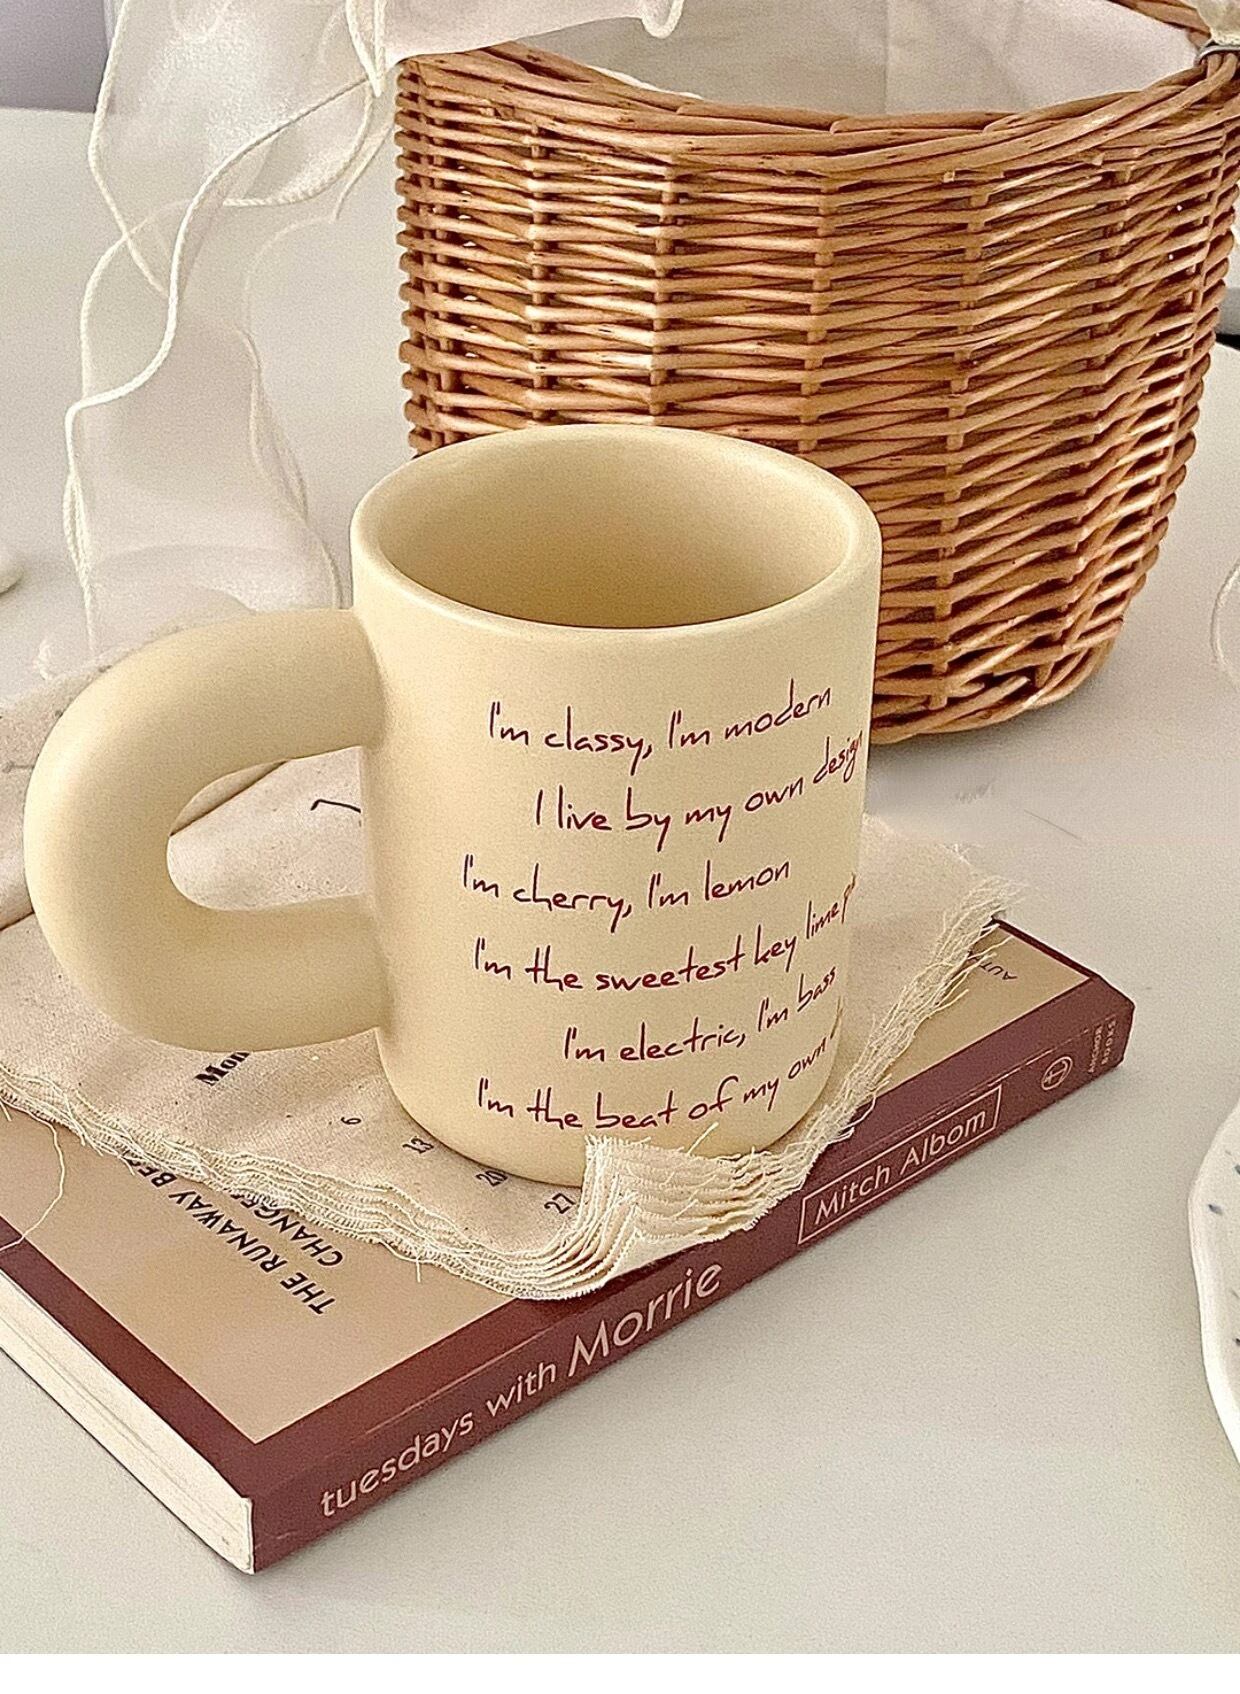 I'm classy, I'm modern
I live by my own design
I'm cherry, I'm lemon
I'm the sweetest key lime
I'm electric, I'm bass
I'm the beat of my own
Mon
6
13
20
27
THE RUNAWAY BES
CHANGE
tuesdays with Morrie
Mitch Albom
ANCHOR
BOOKS